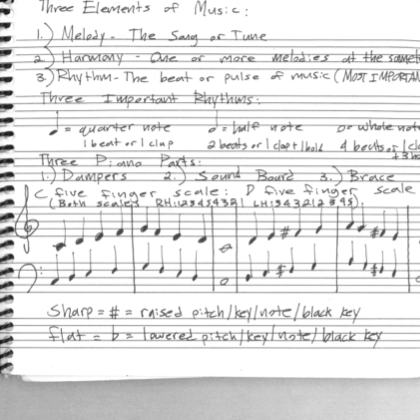 Three Elements of Music:
1.) Melody - The Song or Tune
2.) Harmony - One or more melodies at the same
3.) Rhythm - The beat or pulse of music (MOST IMPORTAN
Three Important Rhythms:
♩ = quarter note 𝅗𝅥 = half note o = whole note
1 beat or 1 clap 2 beats or 1 clap + 1 hold 4 beats or 1 cla
+3 ho
Three Piano Parts:
1.) Dampers 2.) Sound Board 3.) Brace
C five finger scale: D five finger scale
(Both scales RH:123454321 LH:543212345)
Sharp = # = raised pitch/key/note/black key
flat = b = lowered pitch/key/note/black key